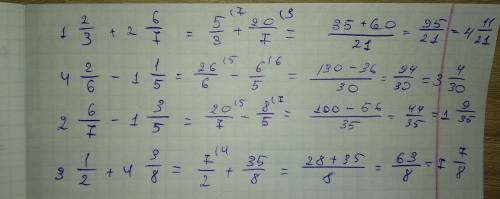 1 2/3 + 2 6/7 = 5/3 (7 + 20/7 (3 = (35 + 60)/21 = 95/21 = 4 11/21
4 2/6 - 1 1/5 = 26/6 (5 - 6/5 (6 = (130 - 36)/30 = 94/30 = 3 4/30
2 6/7 - 1 3/5 = 20/7 (5 - 8/5 (7 = (100 - 56)/35 = 44/35 = 1 9/35
3 1/2 + 4 3/8 = 7/2 (4 + 35/8 = (28 + 35)/8 = 63/8 = 7 7/8